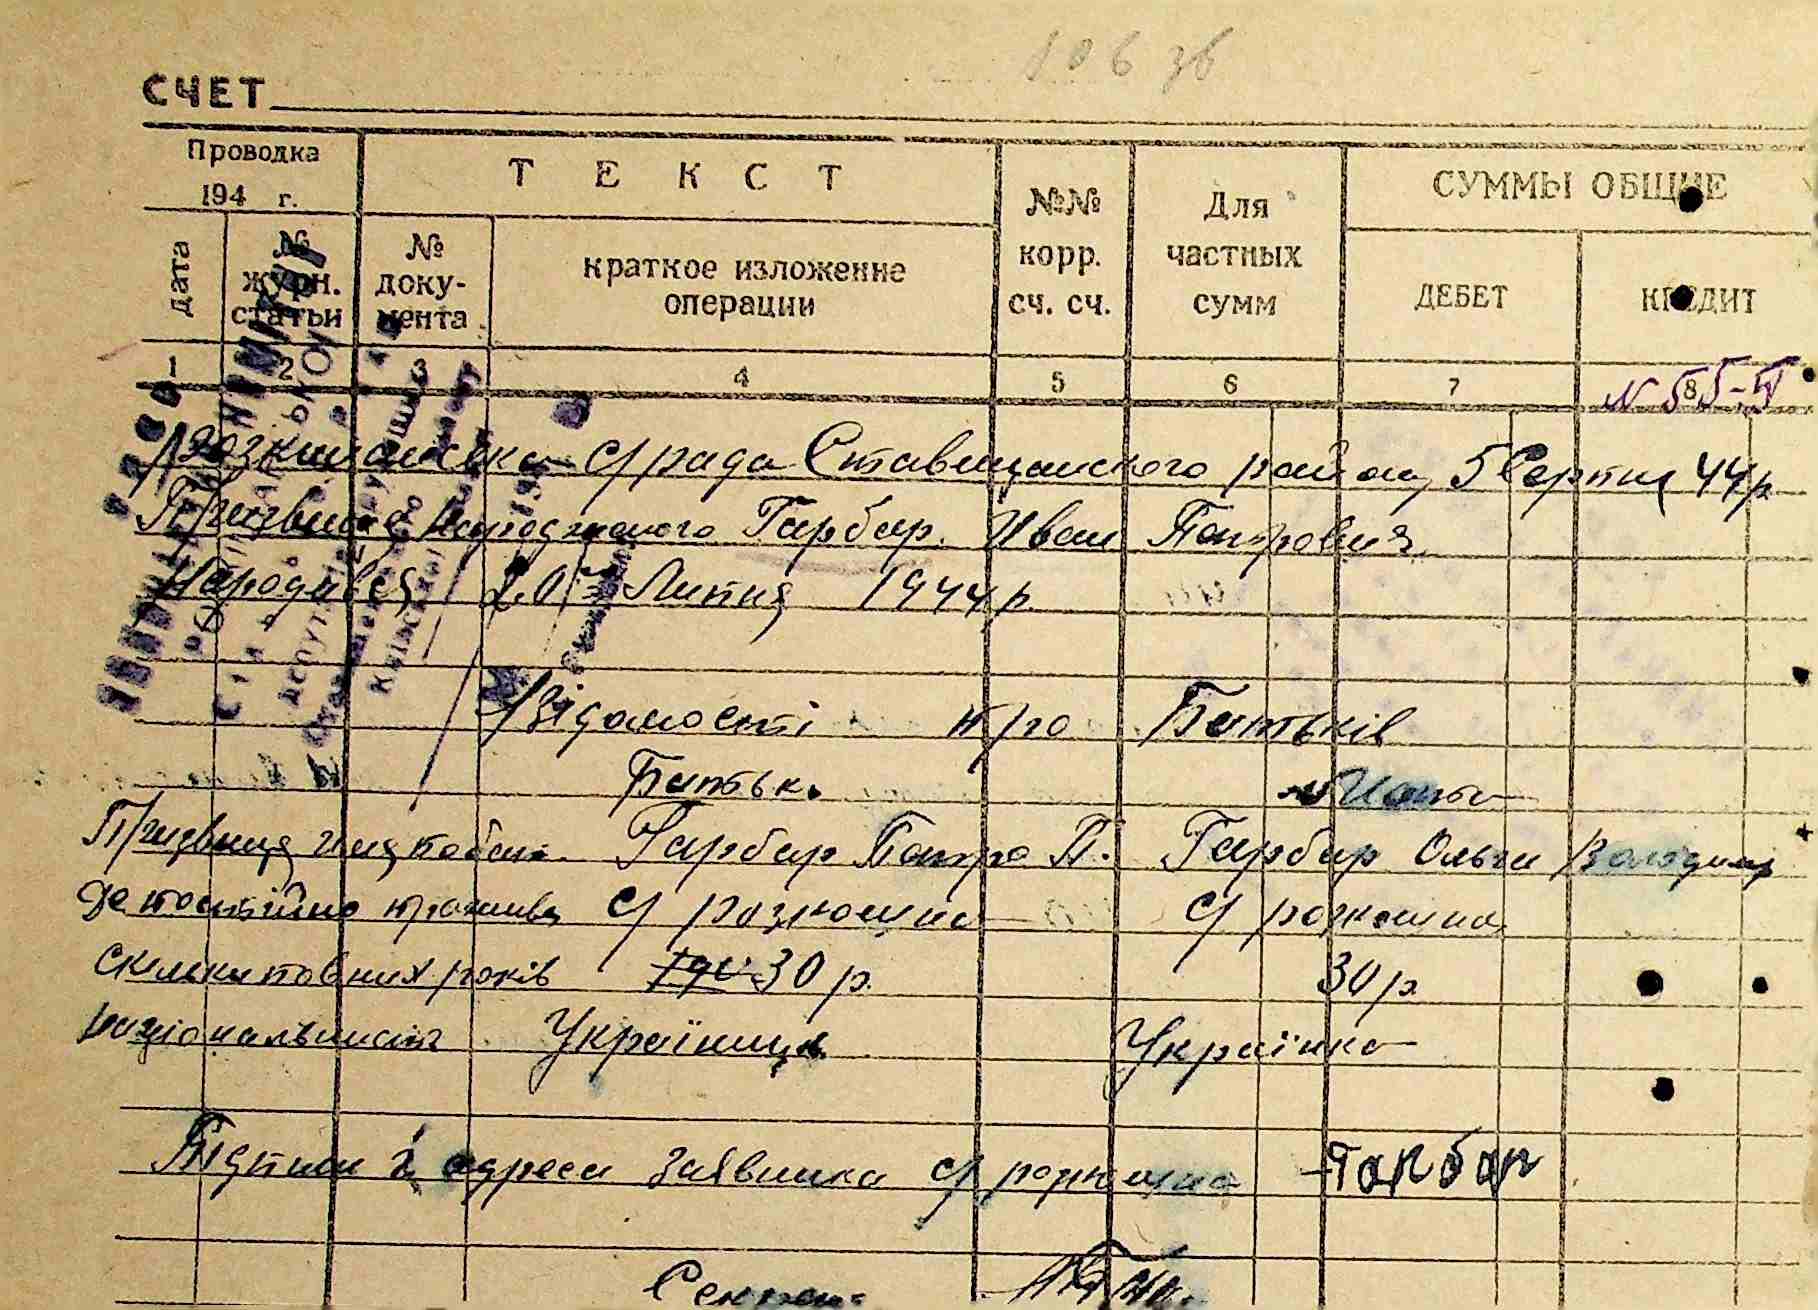 106 зв
СЧЕТ
Проводка
194 г.
ТЕКСТ
№№ корр. сч. сч.
Для частных сумм
СУММЫ ОБЩИЕ
Дата
№ журн. статьи
№ доку-мента
краткое изложение операции
ДЕБЕТ
КРЕДИТ
1 2 3 4 5 6 7 8
N 55-
с/рада Ставищанского района, 5 Серпня 44 р
Призвище народженого Гарбар Иван Петрович
Народився 20 Липня 1944 р.
Відомості про Батьків
Батько Мати
Призвище имя побат. Гарбар Петро П. Гарбар Ольга Володимир
де постійно прожива с/ розкошна с/ розкошна
скилько повних років 30 р. 30 р
національность Українец Українка
Підпис і адреса заявника с/ розкошна Гарбар
Секрет.